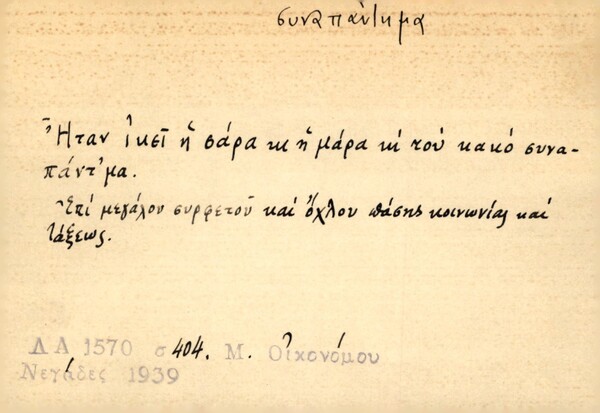 συναπάντημα
Ἦταν ἰκεῖ ἡ σάρα κι ἡ μάρα κι τοὺ κακό συνα-
πάντ'μα.
Ἐπί μεγάλου συρφετοῦ καί ὄχλου πάσης κοινωνίας καί
τάξεως.
ΔΑ 1570 σ 404. Μ. Οἰκονόμου
Νεγάδες 1939